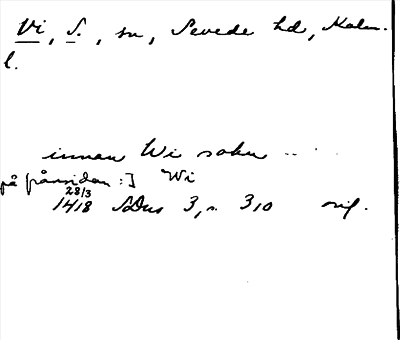 Vi, S., sn, Sevede hd, Kalm.
l.
innan Wi sokn ....
på frånsidan :] Wi
28/3
1418 SDns 3, s. 310 orig.